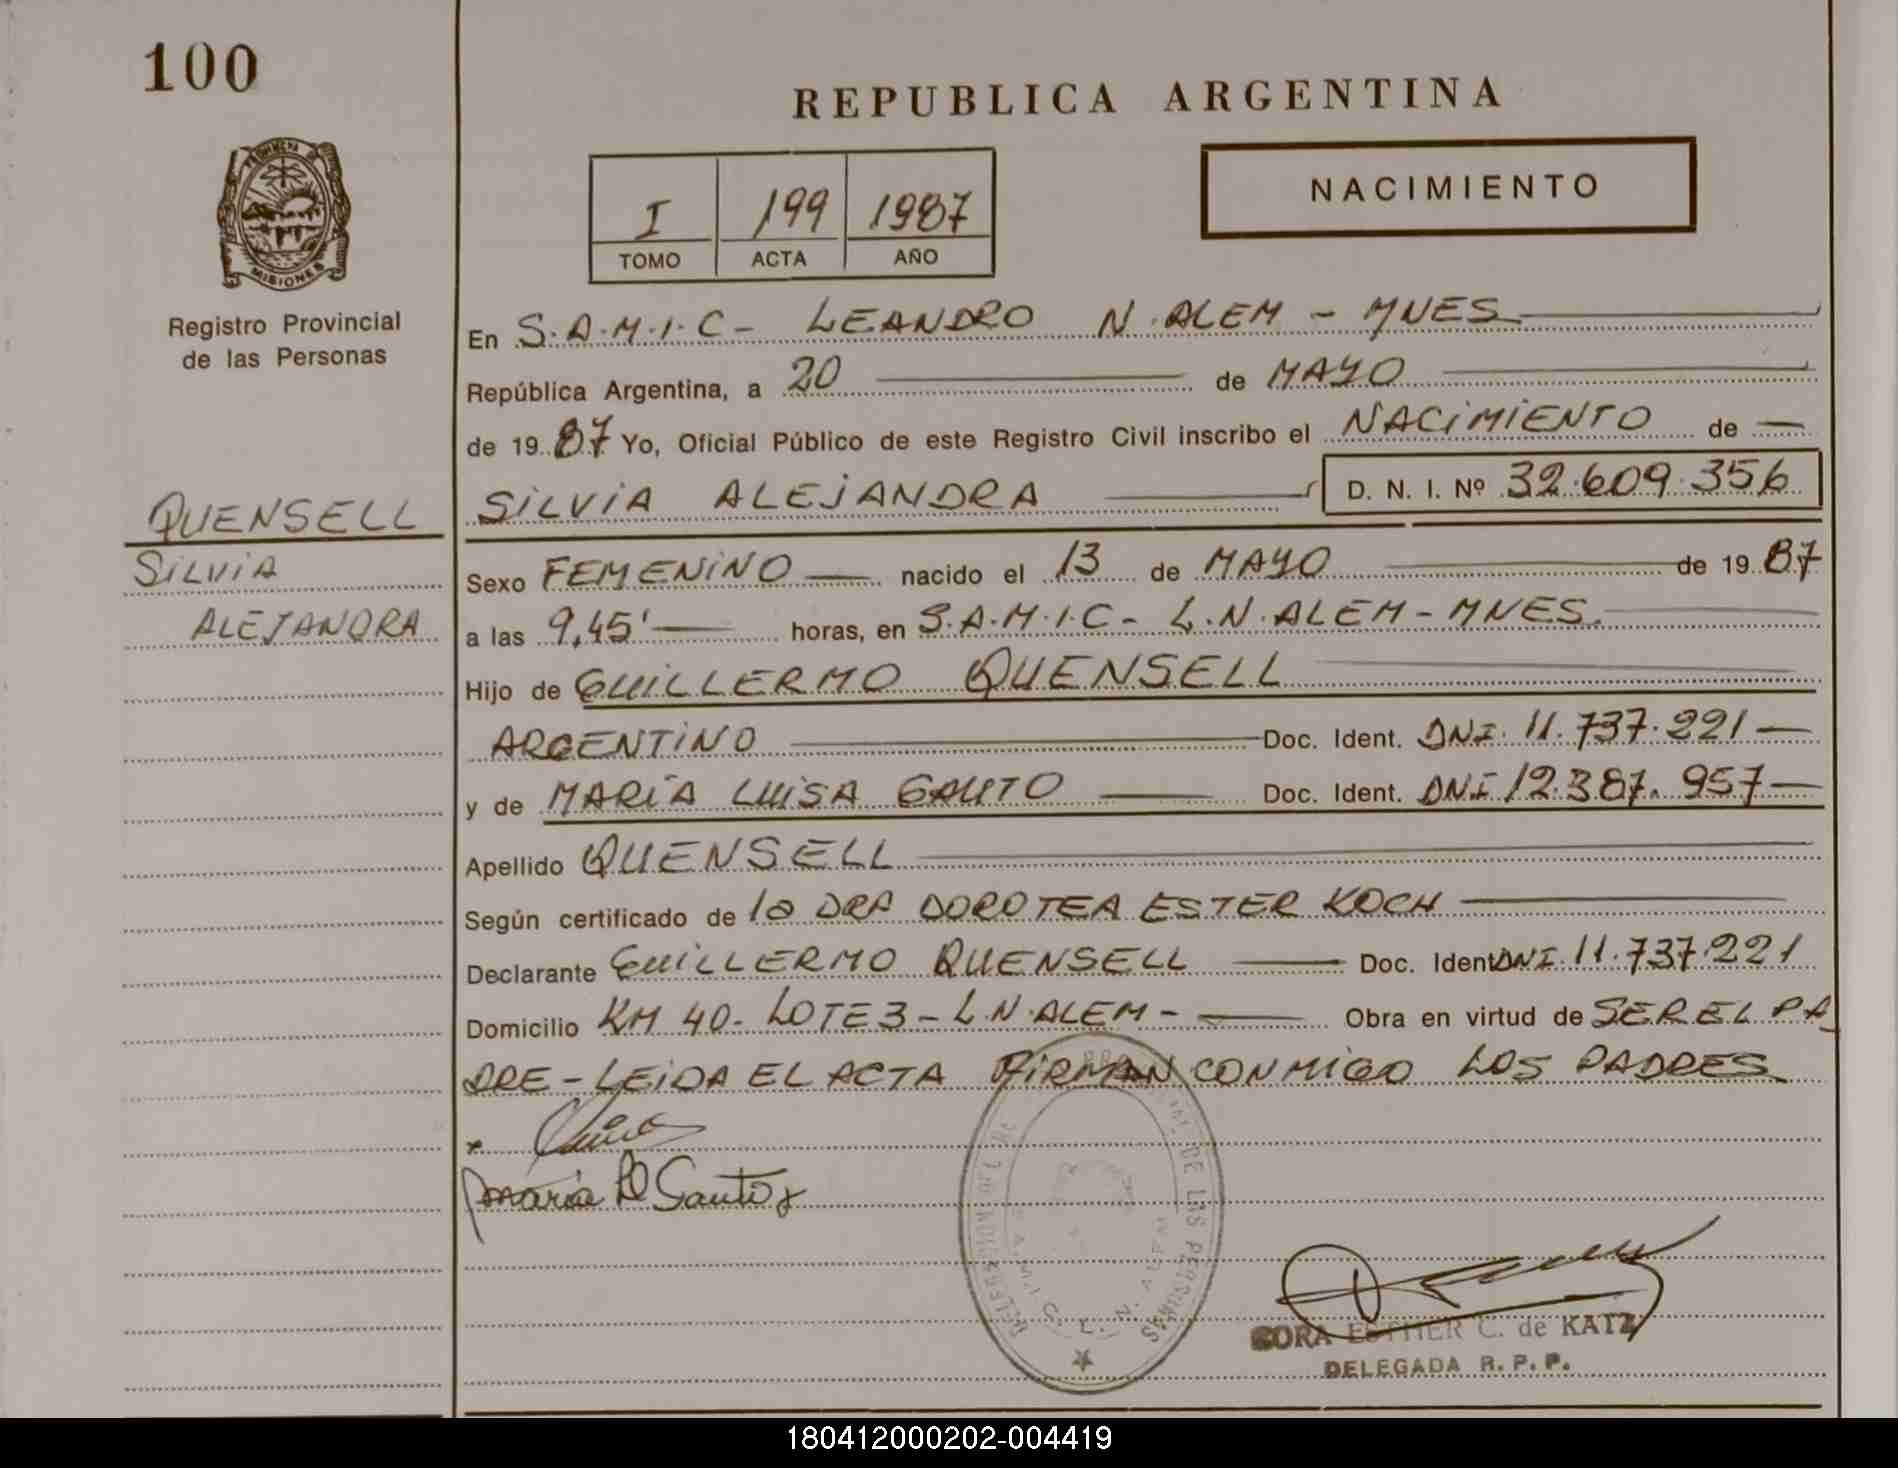 100
REPUBLICA ARGENTINA
PROVINCIA DE
MISIONES
Registro Provincial
de las Personas
I 199 1987
TOMO ACTA AÑO
NACIMIENTO
En S.A.M.I.C- LEANDRO N. ALEM - MNES
República Argentina, a 20 de MAYO
de 1987 Yo, Oficial Público de este Registro Civil inscribo el NACIMIENTO de —
SILVIA ALEJANDRA D. N. I. Nº 32.609.356
QUENSELL
SILVIA
ALEJANDRA
Sexo FEMENINO — nacido el 13 de MAYO de 1987
a las 9,45' horas, en S.A.M.I.C- L.N.ALEM-MNES.
Hijo de GUILLERMO QUENSELL
ARGENTINO Doc. Ident. DNI. 11.737.221 —
y de MARÍA LUISA GAUTO Doc. Ident. DNI 12.387.957 —
Apellido QUENSELL
Según certificado de la DRA DOROTEA ESTER KOCH
Declarante GUILLERMO QUENSELL Doc. Ident DNI. 11.737.221
Domicilio KM 40- LOTE 3- L.N.ALEM- Obra en virtud de SER EL PA
DRE-LEIDA EL ACTA FIRMAN CONMIGO LOS PADRES
Maria
DE LAS PERSONAS
S.A.M.I.C. L. N. ALEM
CORA ESTHER C. de KATZ
DELEGADA R. P. P.
180412000202-004419